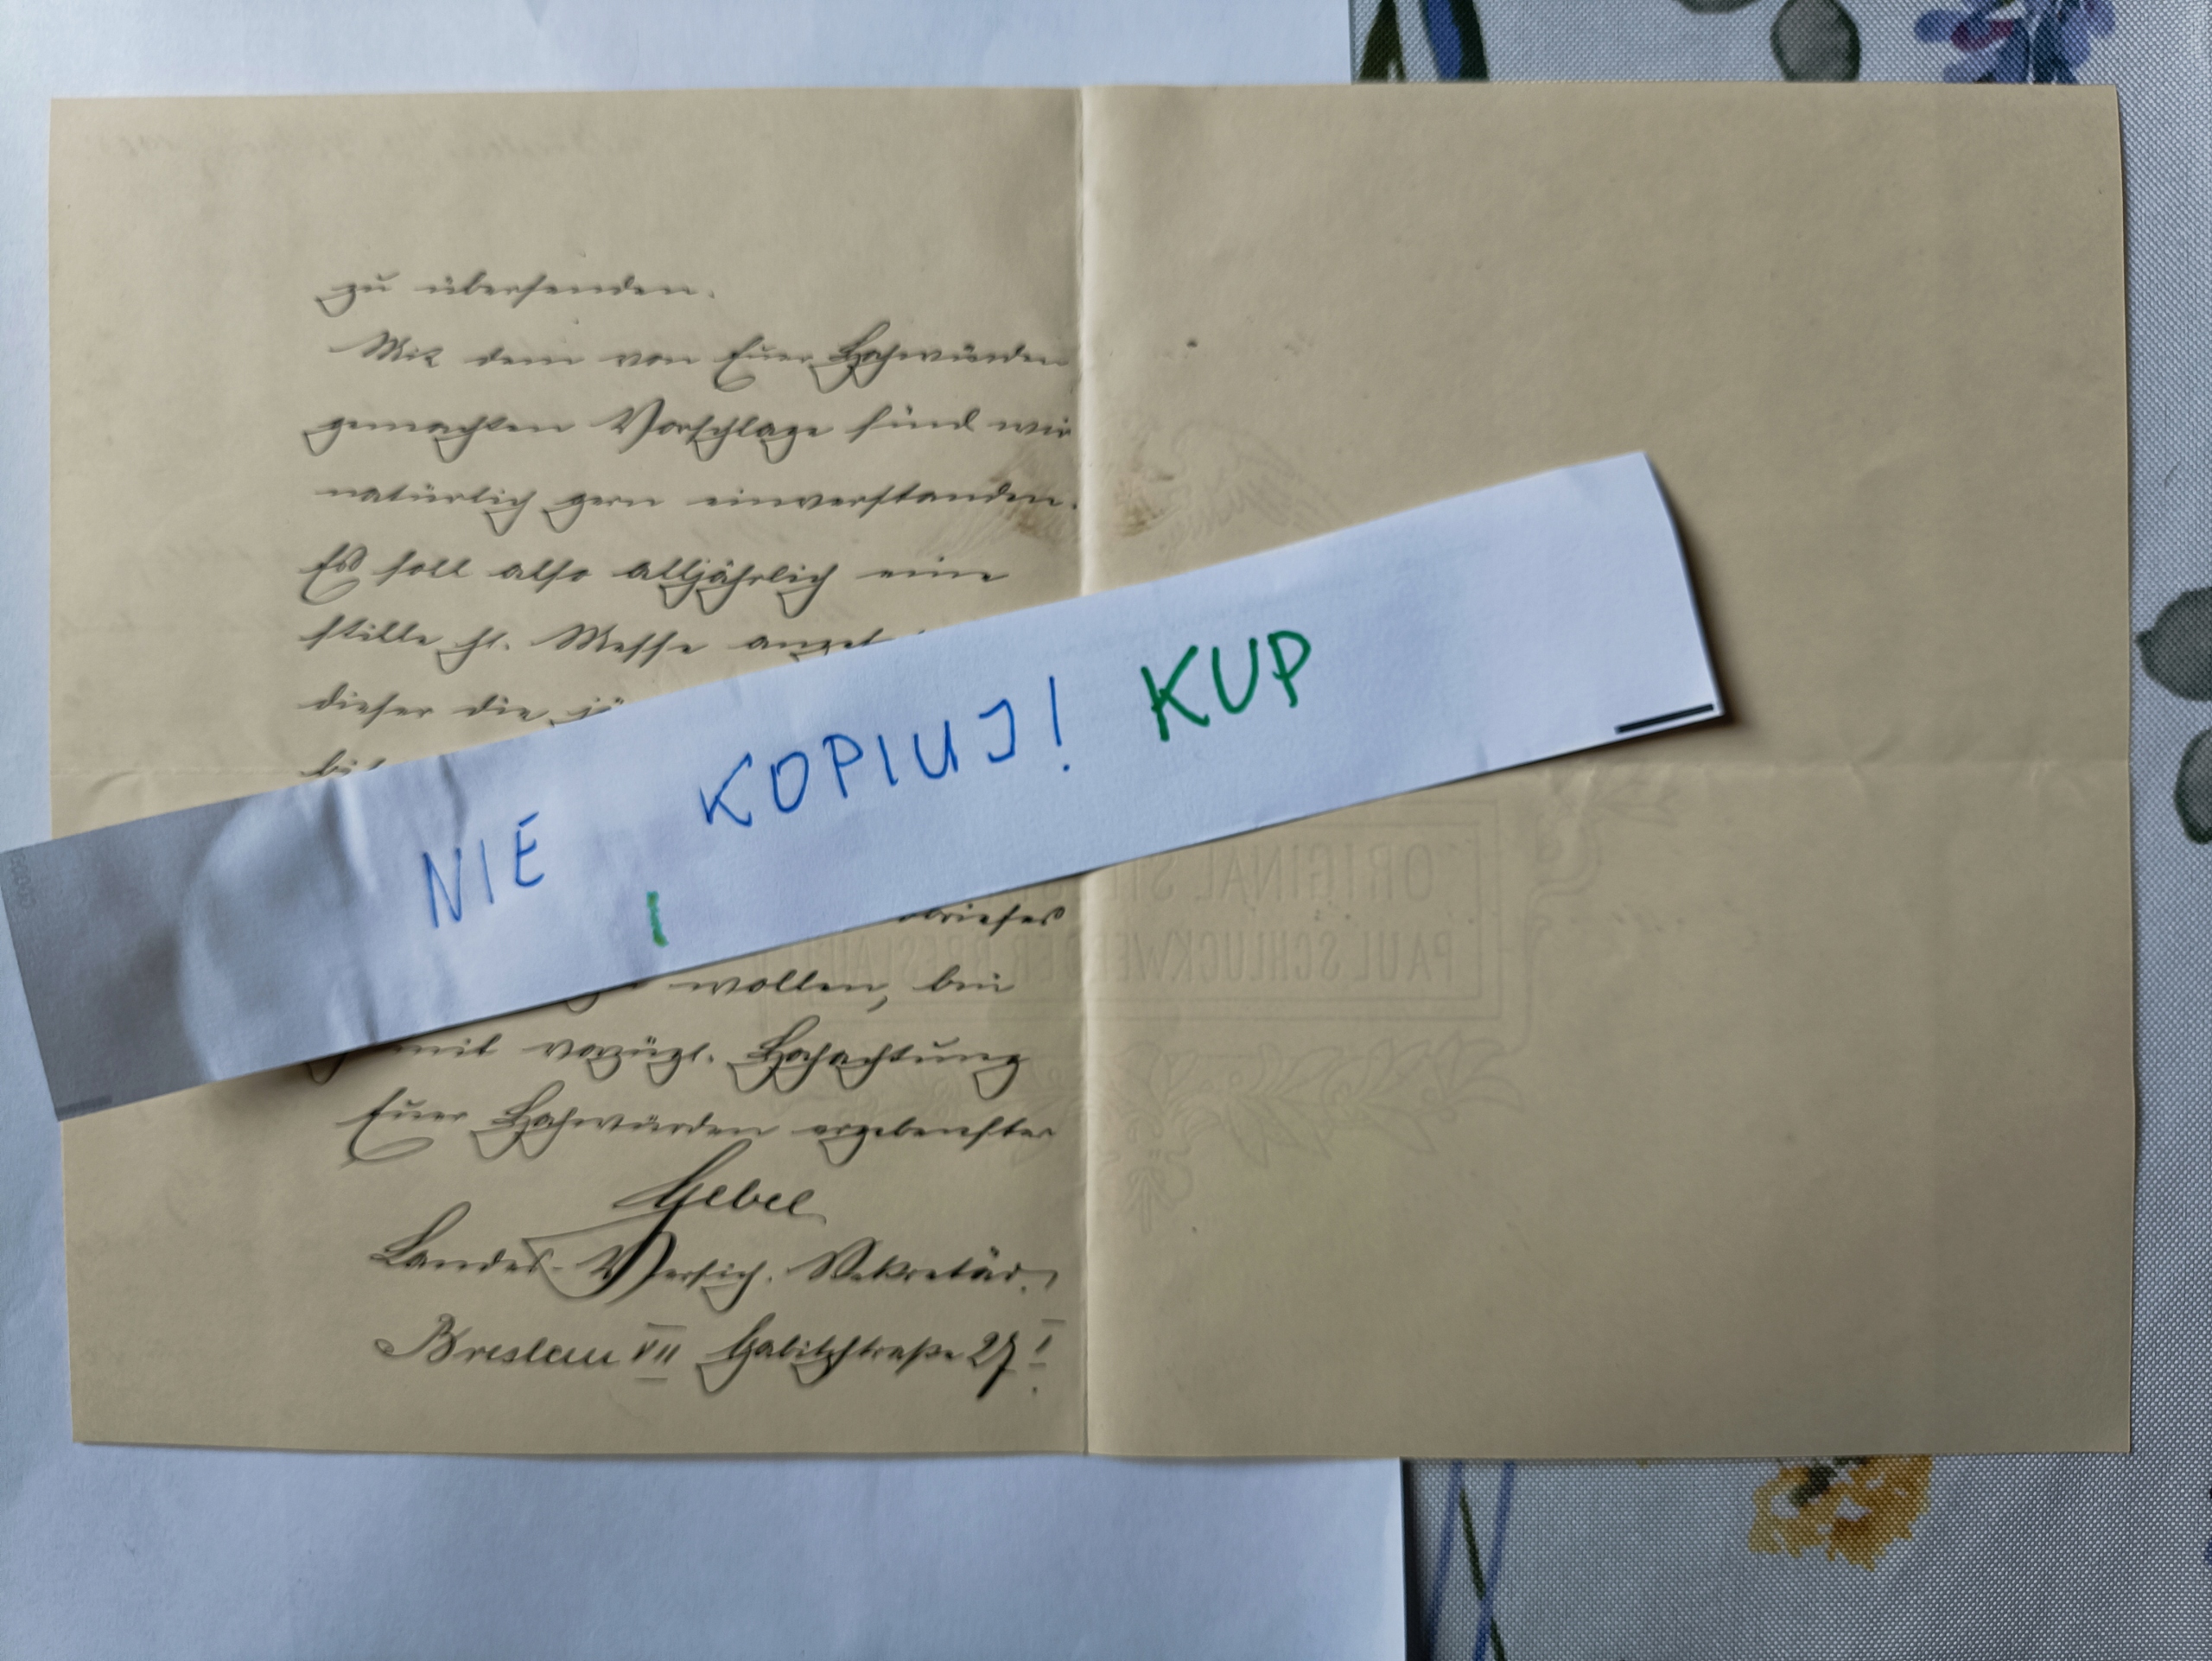 zu übersenden.
Mit dem von Euer Hochwürden
gemachten Vorschlage sind wir
natürlich gern einverstanden.
Es soll also alljährlich eine
stille hl. Messe
dieser die
NIE KOPIUJ! KUP
wollen, bin
mit vorzügl. Hochachtung
Euer Hochwürden ergebenster
Gebel
Landes-Versich. Sekretär.
Breslau VII Gabitzstraße 27 I
ORIGINAL
PAUL SCHLUCKWERDER BRESLAU